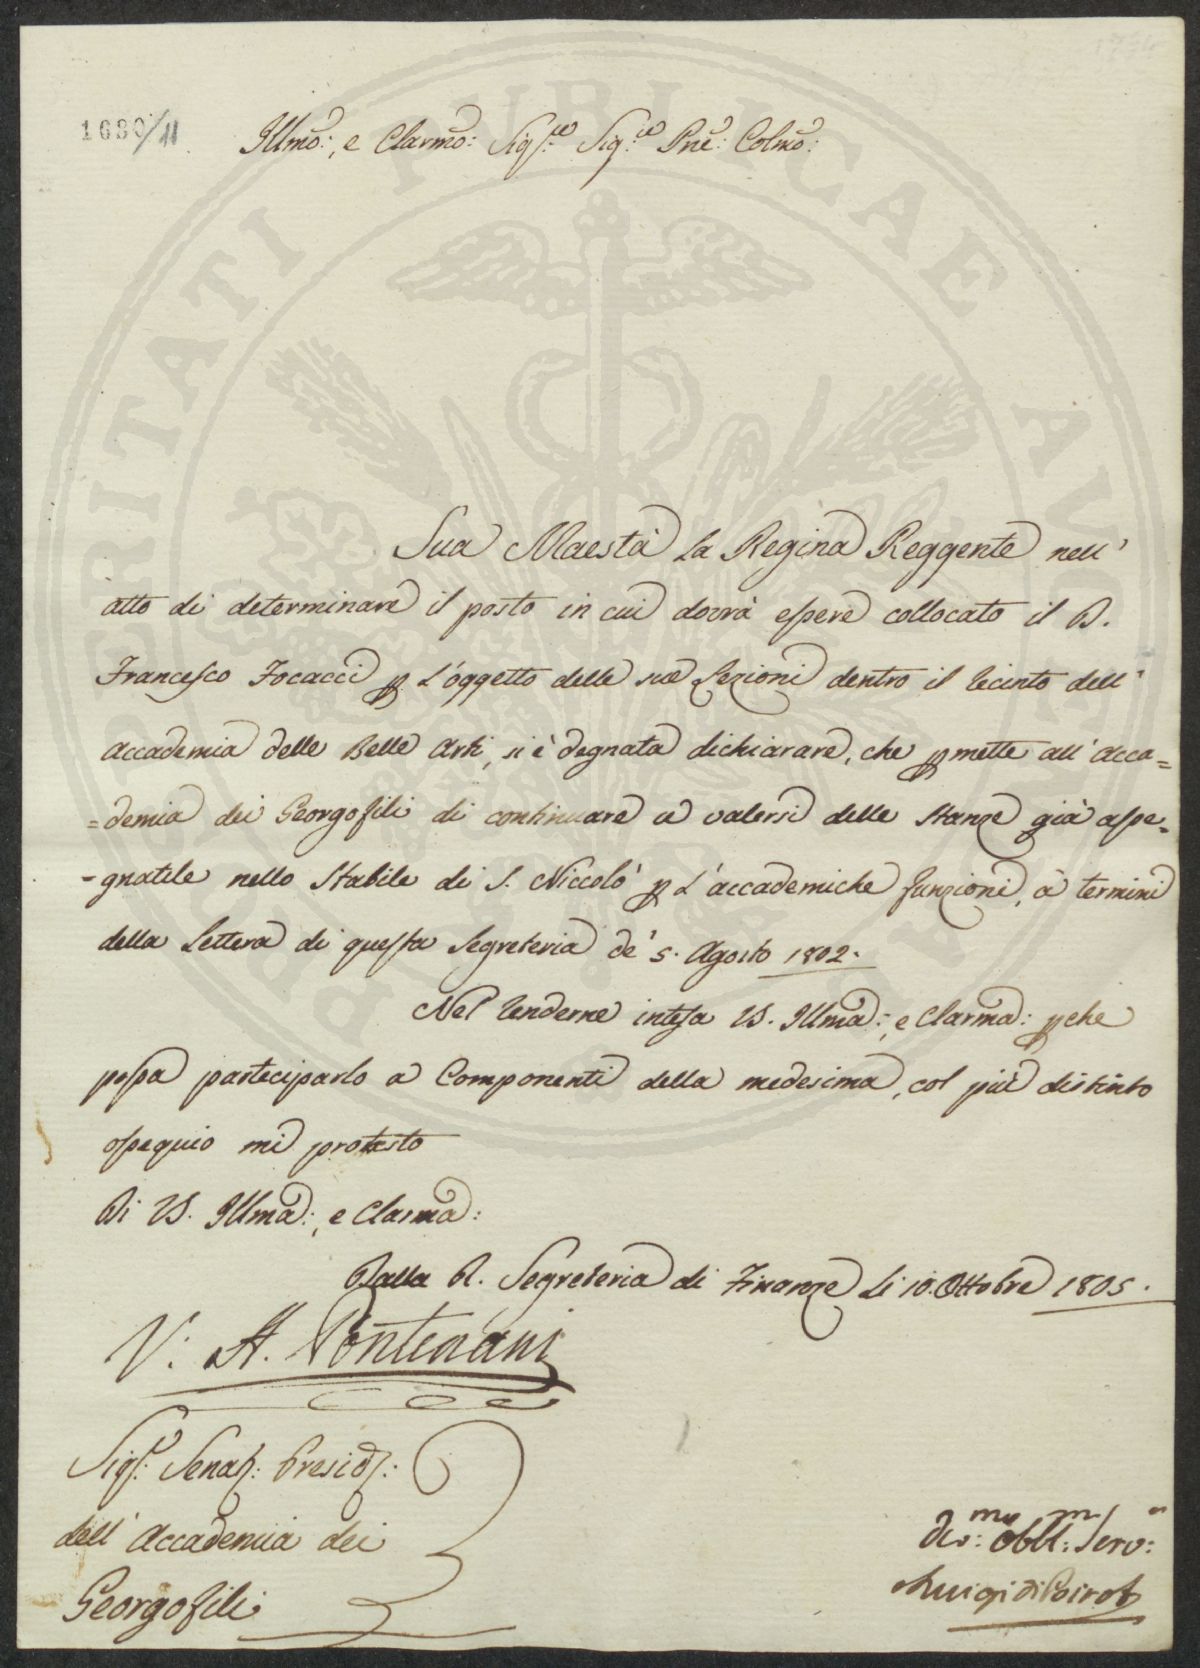 1680/11
Illmo:, e Clarmo: Sigre: Sigre Pne: Colmo:
Sua Maestà la Regina Reggente nell'
atto di determinare il posto in cui dovrà essere collocato il D.
Francesco Focacci p. l'oggetto delle sue Lezioni dentro il recinto dell'
Accademia delle Belle Arti, si è degnata dichiarare, che pmette all'Acca=
=demia dei Georgofili di continuare a valersi delle Stanze già asse-
-gnatele nello Stabile di S. Niccolò p l'accademiche funzioni, a termini
della Lettera di questa Segreteria de' 5. Agosto 1802.
Nel renderne intesa VS. Illma:, e Clarma: pche
possa parteciparlo a Componenti della medesima, col più distinto
ossequio mi protesto
Di VS. Illma:, e Clarma:
Dalla R. Segreteria di Finanze li 10. Ottobre 1805.
V: A. Pontenani
Sigr: Senat: Presidt:
dell'Accademia dei
Georgofili
Devmo: obblmo: Serv:
Luigi di Poirot
PROSPERITATI PUBLICAE AU